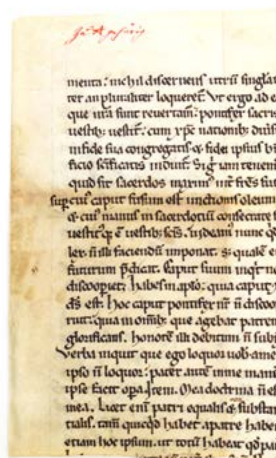 menta: nichil discernens utrũ singlar
ter an pluraliter loqueret̃. Vt ergo ad e
que sunt reuertam̃: pontifex sacris
uestib; uestit̃: cum xp̃c nationib;
in fide sua congregatis & fidei ipsius
ficio sc̃ificatis induit̃. iam
quid sit sacerdos maximꝰ int̃ fr̃es
super cuiꝰ caput fusum est unctionis oleum
& cuiꝰ manus in sacerdotiũ consecrate
uestitꝰq; ẽ uestib; sc̃is. Videam̃ nunc qd
ñ illi faciendũ imponat. S; quale e
futurum p̃dicat. Caput suum inqt n
discoopiet; habes in aplõ: quia caput
ds̃ est. hoc caput pontifex nr̃ ñ discoo
ruit: quia in omib; que agebat patrem
glorificans. honorẽ illi debitum ñ sub
Verba inquit que ego loquor uob
ipso ñ loquor: pater autẽ inme mani
ipse facit opa. Item. Mea doctrina ñ es
mea. Licet eni patri equalis & substan
tialis. tam̃ quicqd habet apatre habet
etiam hoc ipsum. ut totũ habeat qd pat